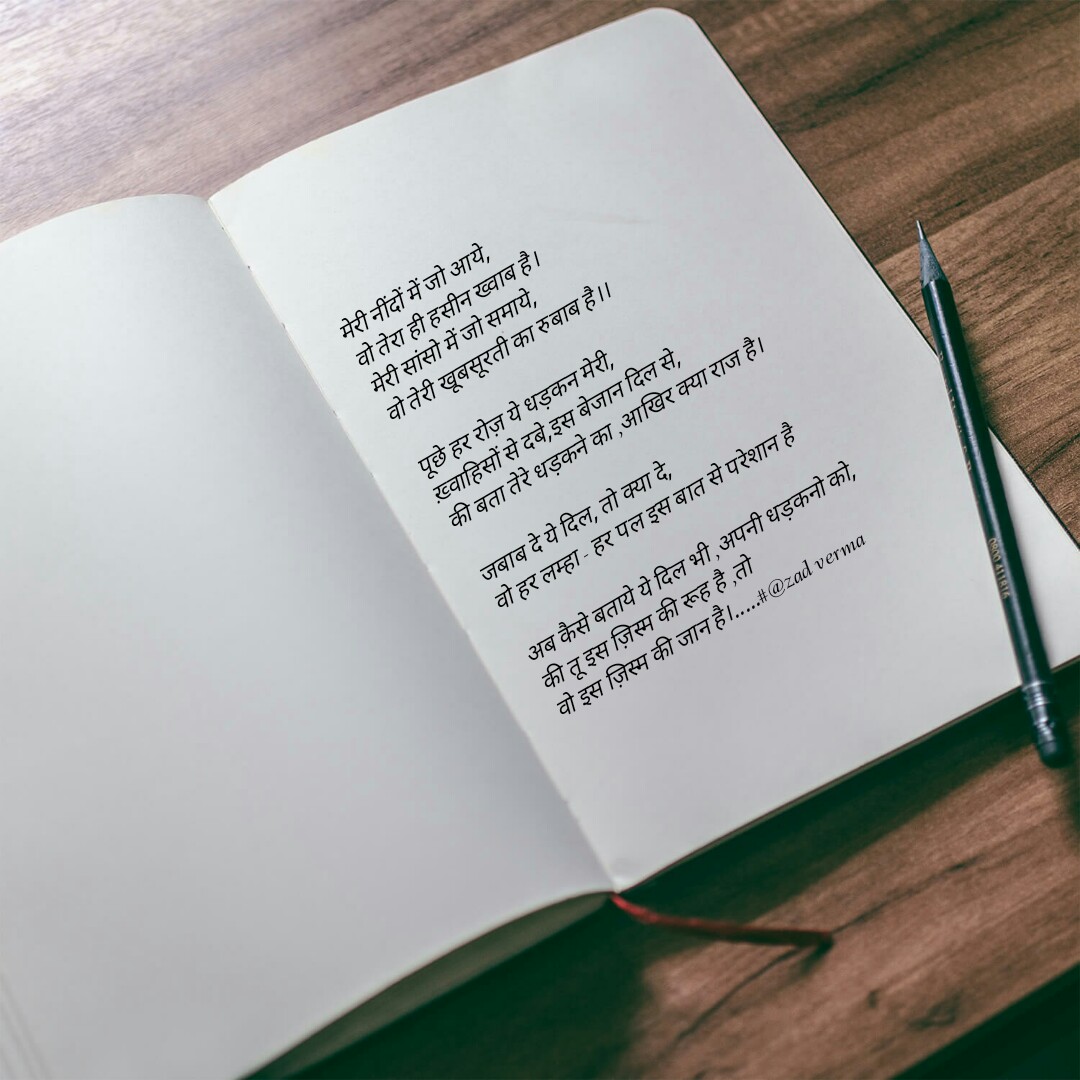 मेरी नींदों में जो आये,
वो तेरा ही हसीन ख्वाब है।
मेरी सांसो में जो समाये,
वो तेरी खूबसूरती का रुबाब है।।
पूछे हर रोज़ ये धड़कन मेरी,
ख़्वाहिसों से दबे,इस बेजान दिल से,
की बता तेरे धड़कने का ,आखिर क्या राज है।
जबाब दे ये दिल, तो क्या दे,
वो हर लम्हा - हर पल इस बात से परेशान है
अब कैसे बताये ये दिल भी ,अपनी धड़कनो को,
की तू इस ज़िस्म की रूह है ,तो
वो इस ज़िस्म की जान है।.....#@zad verma